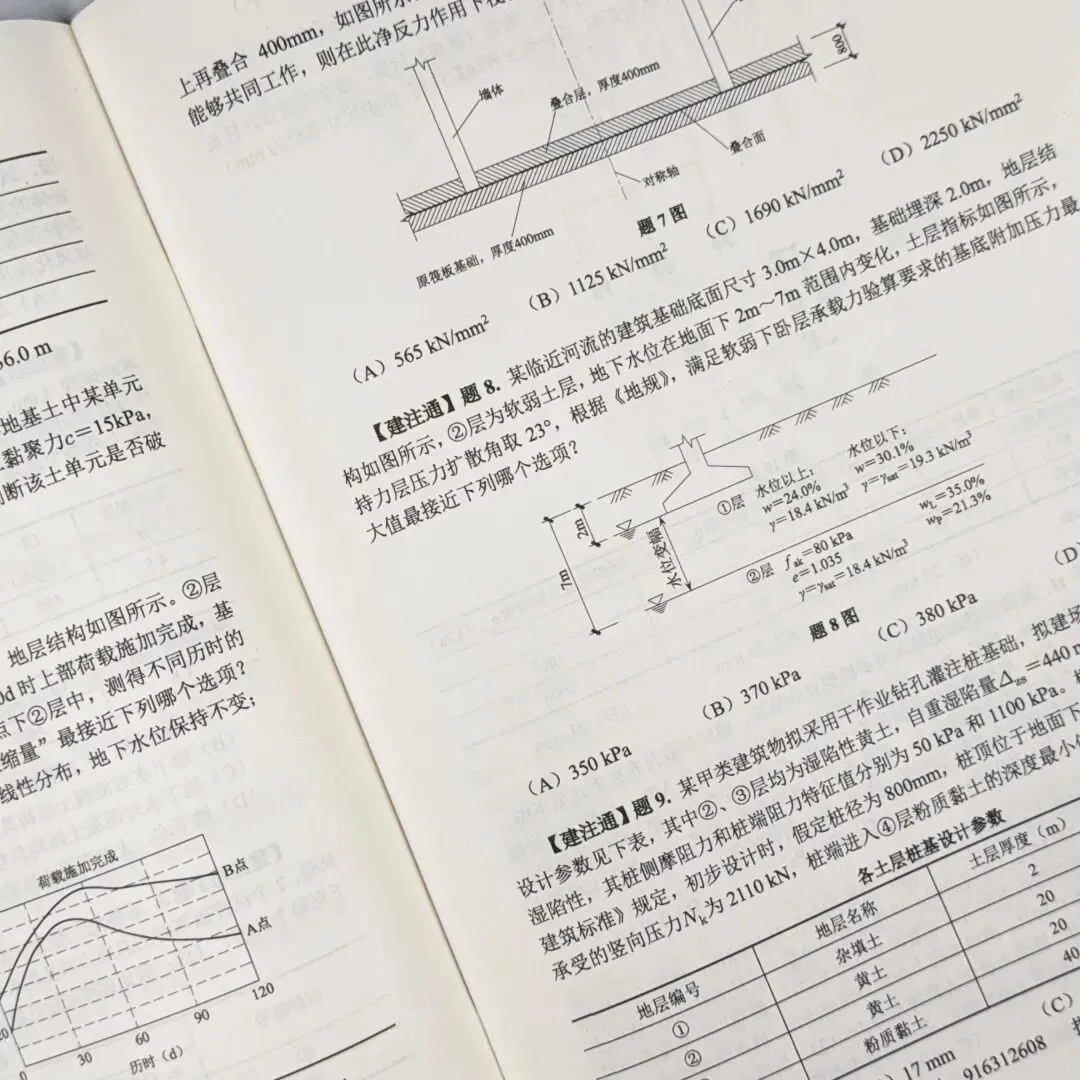 36.0 m
地基土中某单元
黏聚力c=15kPa,
判断该土单元是否破
地层结构如图所示。②层
0d时上部荷载施加完成,基
点下②层中,测得不同历时的
缩量”最接近下列哪个选项?
线性分布,地下水位保持不变;
荷载施加完成
B点
A点
30
60
90
120
历时(d)
上再叠合 400mm,如图所示
能够共同工作,则在此净反力作用下
墙体
叠合层,厚度400mm
800
叠合面
对称轴
原筏板基础,厚度400mm
题7图
(A)565 kN/mm²
(B)1125 kN/mm²
(C)1690 kN/mm²
(D)2250 kN/mm²
【建注通】题 8. 某临近河流的建筑基础底面尺寸 3.0m×4.0m,基础埋深 2.0m,地层结
构如图所示,②层为软弱土层,地下水位在地面下 2m~7m 范围内变化,土层指标如图所示,
持力层压力扩散角取 23°,根据《地规》,满足软弱下卧层承载力验算要求的基底附加压力最
大值最接近下列哪个选项?
2m
7m
水位变幅
①层
水位以上:
w=24.0%
γ=18.4 kN/m³
水位以下:
w=30.1%
γ=γsat=19.3 kN/m³
②层
fak=80 kPa
e=1.035
γ=γsat=18.4 kN/m³
wL=35.0%
wP=21.3%
题8图
(A)350 kPa
(B)370 kPa
(C)380 kPa
(D)
【建注通】题 9. 某甲类建筑物拟采用干作业钻孔灌注桩基础,拟建场
设计参数见下表,其中②、③层均为湿陷性黄土,自重湿陷量Δzs=440 m
湿陷性,其桩侧摩阻力和桩端阻力特征值分别为 50 kPa 和 1100 kPa。
建筑标准》规定,初步设计时,假定桩径为 800mm,桩顶位于地面下
承受的竖向压力Nk为 2110 kN,桩端进入④层粉质黏土的深度最小
各土层桩基设计参数
地层编号
地层名称
土层厚度(m)
①
杂填土
2
②
黄土
20
黄土
20
粉质黏土
40
(C)
17 mm
916312608